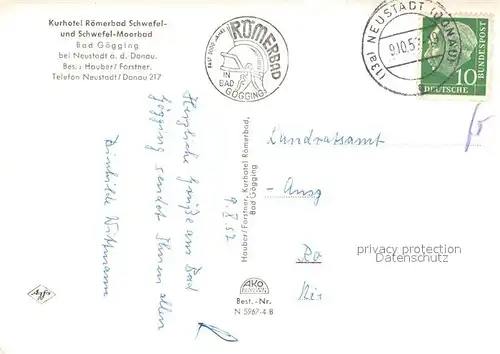 Kurhotel Römerbad Schwefel-
und Schwefel-Moorbad
Bad Gögging
bei Neustadt a. d. Donau.
Bes.: Hauber/ Forstner.
Telefon Neustadt/Donau 217
FAST 2000 JAHRE
RÖMERBAD
IN
BAD
GÖGGING
(13a) NEUSTADT (DONAU)
9.10.57
10
DEUTSCHE
BUNDESPOST
Herzliche Grüße aus Bad
Gögging sendet Ihnen allen
Dinhilde Wittmann
9. X. 57
Hauber/Forstner, Kurhotel Römerbad,
Bad Gögging
Landratsamt
-Ausg
privacy protection
Datenschutz
Agfa
AKO
Best.-Nr.
N 5967-4 B